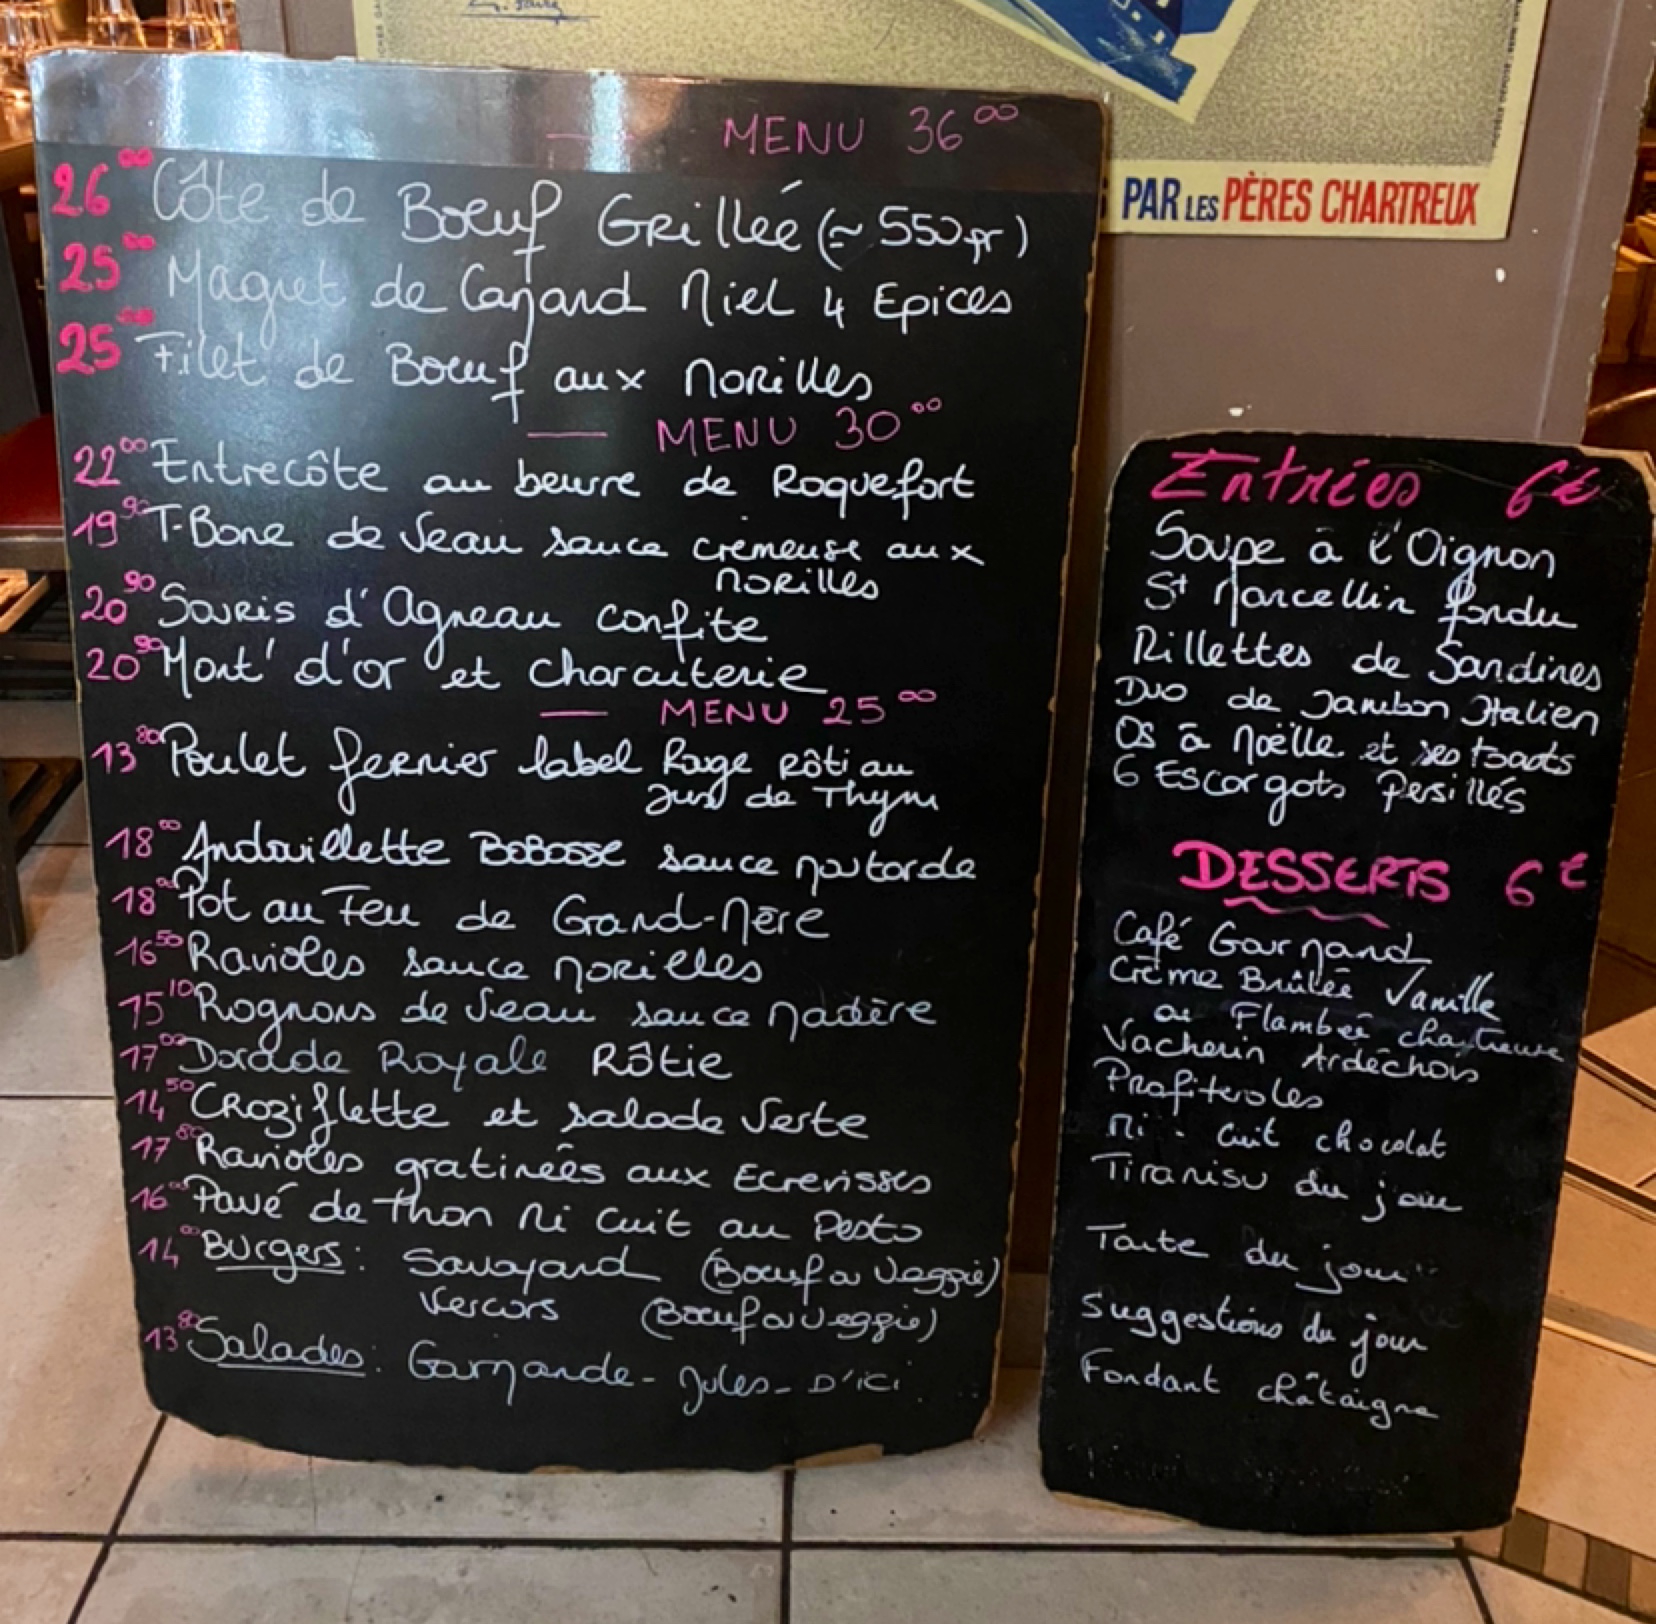 PAR LES PÈRES CHARTREUX
MENU 36 00
26 00 Côte de Boeuf Grillée (≃ 550gr)
25 00 Magret de Canard Miel 4 Epices
25 00 Filet de Boeuf aux Morilles
— MENU 30 00
22 00 Entrecôte au beurre de Roquefort
19 90 T-Bone de Veau sauce crémeuse aux
Morilles
20 90 Souris d'Agneau confite
20 90 Mont' d'or et charcuterie
— MENU 25 00
13 80 Poulet fermier label Rouge Rôti au
Jus de Thym
18 00 Andouillette BOBOSSE sauce moutarde
18 00 Pot au Feu de Grand-Mère
16 50 Ravioles sauce Morilles
15 10 Rognons de Veau sauce Madère
17 00 Dorade Royale Rôtie
14 50 Croziflette et salade Verte
17 80 Ravioles gratinées aux Ecrevisses
16 00 Pavé de Thon Mi Cuit au Pesto
14 00 Burgers : Savoyard (Boeuf ou Veggie)
Vercors (Boeuf ou Veggie)
13 80 Salades : Gourmande - Jules - D'ici
Entrées 6€
Soupe à l'Oignon
St Marcellin fondu
Rillettes de Sardines
Duo de Jambon Italien
Os à Moëlle et ses toasts
6 Escargots Persillés
DESSERTS 6€
Café Gourmand
Crème Brûlée Vanille
ou Flambée chartreuse
Vacherin Ardéchois
Profiteroles
Mi-Cuit chocolat
Tiramisu du jour
Tarte du jour
Suggestions du jour
Fondant châtaigne